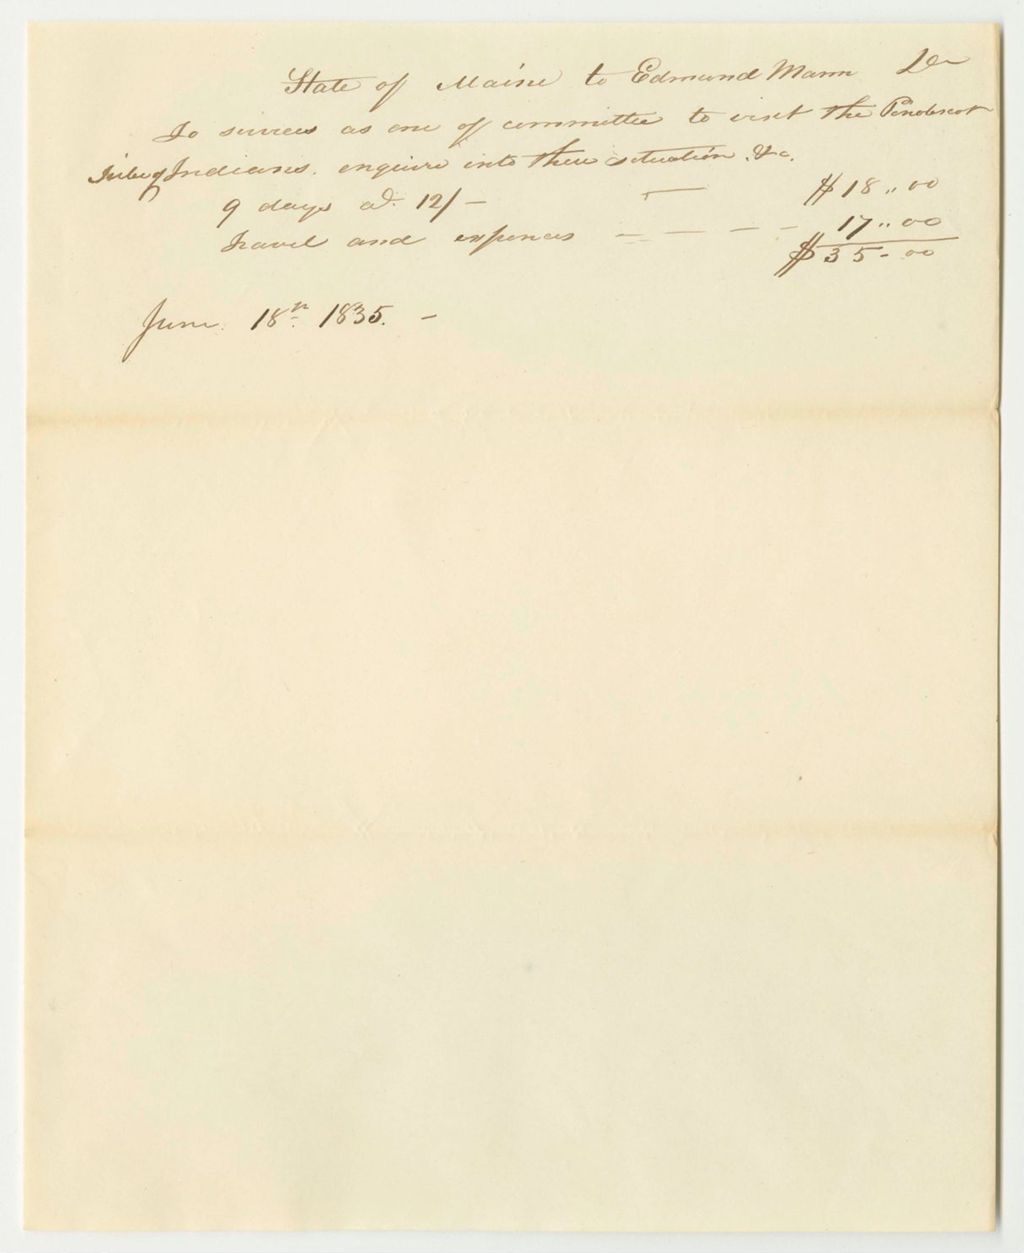 State of Maine to Edmund Mann Dr
To services as one of committee to visit the Penobscot
Tribe of Indians. enquire into their situation. &c.
9 days ad. 12/ — — $18,,00
Travel and expences — — — — 17,,00
$35-00
June 18th 1835. —